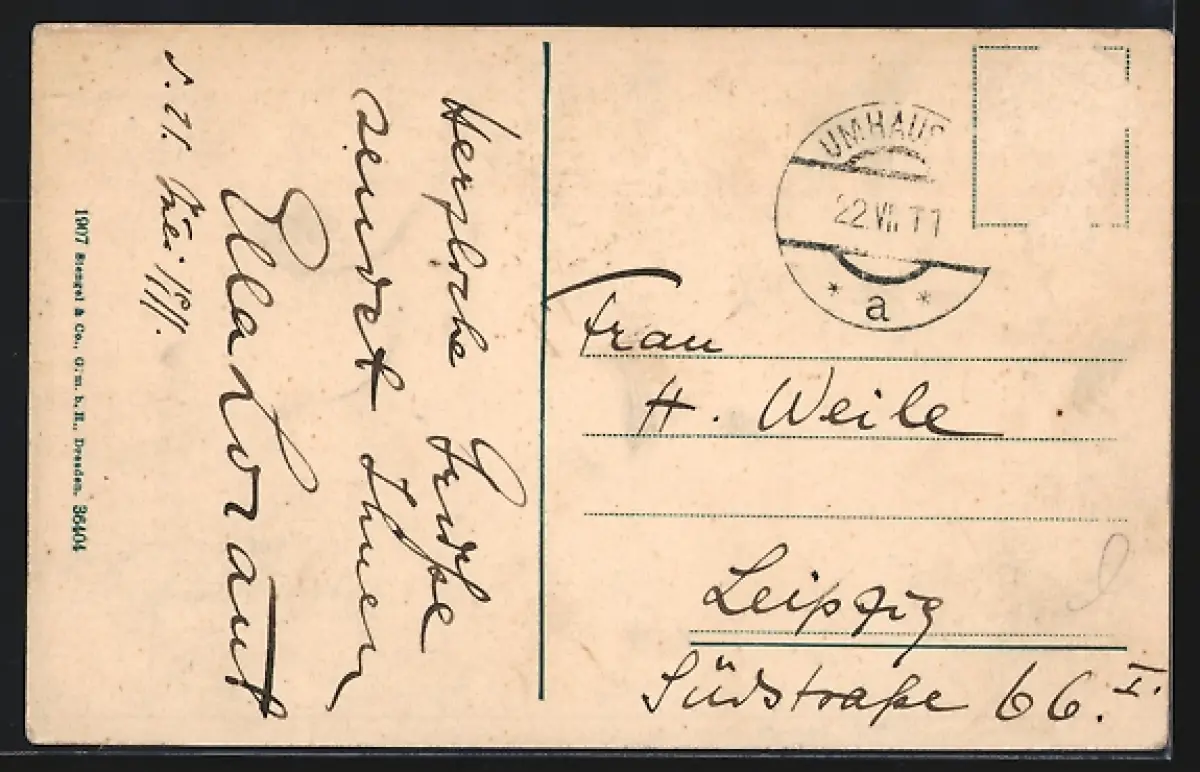 Herzliche Grüße
sendet Ihnen
Ella
d. 21. 1911.
1907 Stengel & Co., G. m. b. H., Dresden. 36404
UMHAUS
22.VII.11
* a *
Frau
H. Weile
Leipzig
Südstraße 66. I.